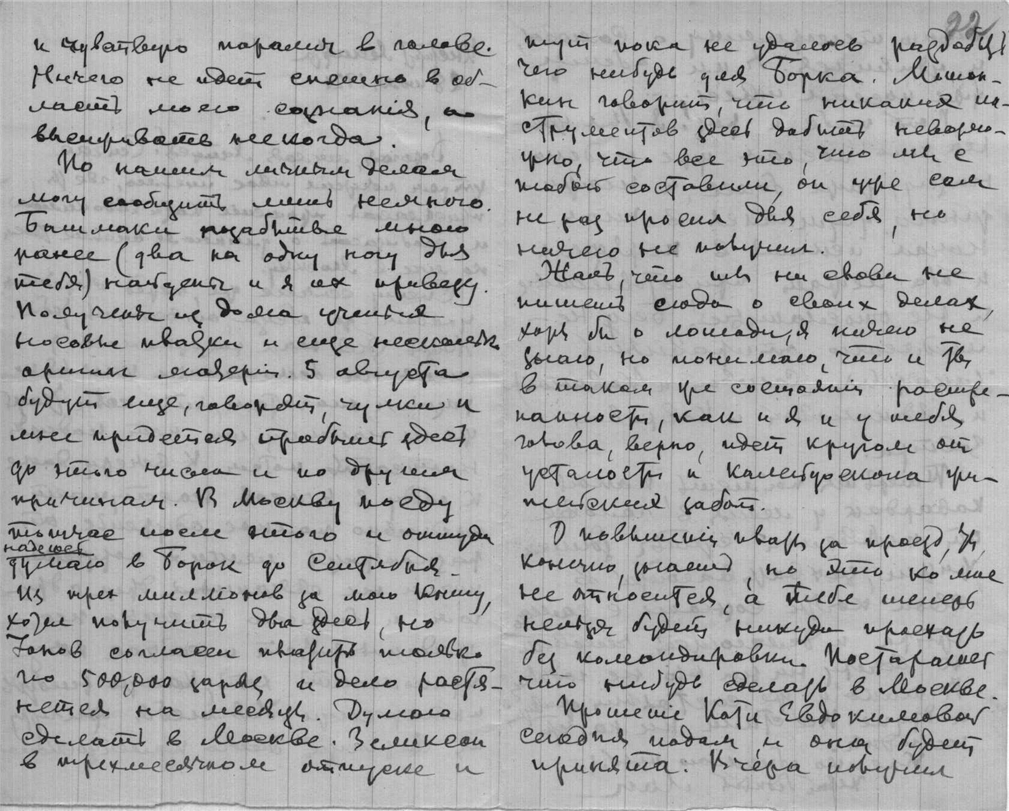 и чувствую паралич в голове.
Ничего не идет спешно в об-
ласть моего сознанія, а
высиживать некогда.
По нашим личным делам
могу сообщить лишь немного.
Башмаки позабытые много
ранее (два на одну ногу для
тебя) найдены и я их привезу.
Получены из дома ученых
носовые платки и еще несколько
аршин матеріи. 5 августа
будут еще, говорят, чулки и
мне придется пробыть здесь
до этого числа и по другим
причинам. В Москву поеду
тотчас после этого и оттуда
надеюсь
думаю в Борок до Сентября.
Из трех миллионов за мою книгу,
хотел получить два здесь, но
Ионов согласен платить только
по 500,000 зараз и дело растя-
нется на месяцы. Думаю
сделать в Москве. Зеликсон
в трехмесячном отпуске и
22
тут пока не удалось раздобыть
чего нибудь для Борка. Машон-
кин говорит, что никаких ин-
струментов здесь добыть невозмо-
жно, что все то, что мы с
тобой составили, он уже сам
не раз просил для себя, но
ничего не получил.
Жаль, что ты ни слова не
пишешь сюда о своих делах,
хотя бы о лошади, я ничего не
знаю, но понимаю, что и ты
в таком же состояніи растре-
панности, как и я и у тебя
голова, верно, идет кругом от
усталости и калейдоскопа жи-
тейских забот.
О повышеніи платы за проезд, ты,
конечно, знаешь, но это ко мне
не относится, а тебе теперь
нельзя будет никуда проехать
без командировки. Постараемся
что нибудь сделать в Москве.
Прошеніе Кати Евдокимовой
сегодня подам и она будет
принята. Вчера получил